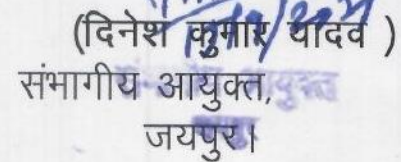 (दिनेश कुमार यादव )
संभागीय आयुक्त,
जयपुर।